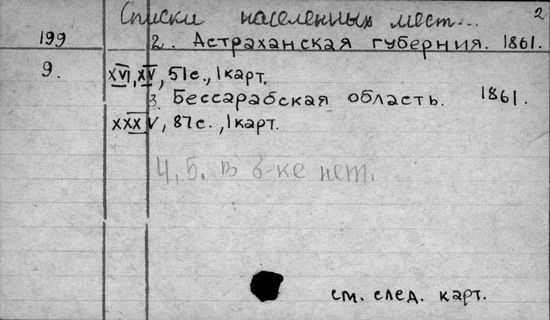 Списки населенных мест... 2
199 2. Астраханская губерния. 1861.
9. XVI, XV, 51 с., 1 карт.
3. Бессарабская область. 1861.
XXXIV, 87 с., 1 карт.
4, 5. в б-ке нет.
см. след. карт.